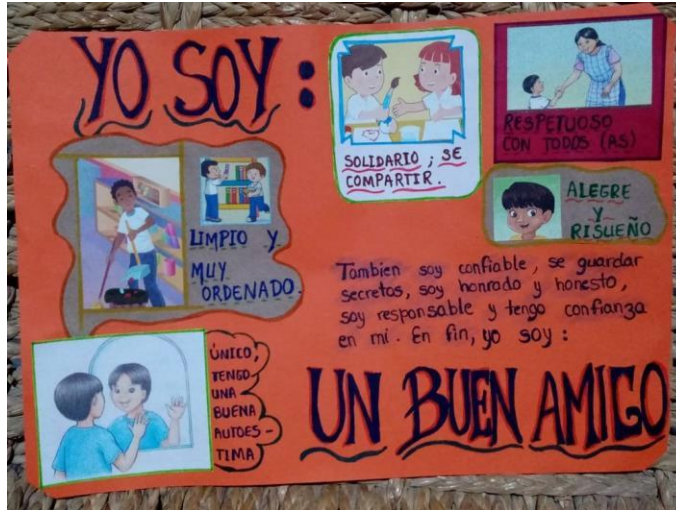 YO SOY :
SOLIDARIO ; SE
COMPARTIR.
RESPETUOSO
CON TODOS (AS)
LIMPIO Y
MUY
ORDENADO.
ALEGRE
Y
RISUEÑO
Tambien soy confiable, se guardar
secretos, soy honrado y honesto,
soy responsable y tengo confianza
en mi. En fin, yo soy :
ÚNICO,
TENGO
UNA
BUENA
AUTOES-
TIMA
UN BUEN AMIGO